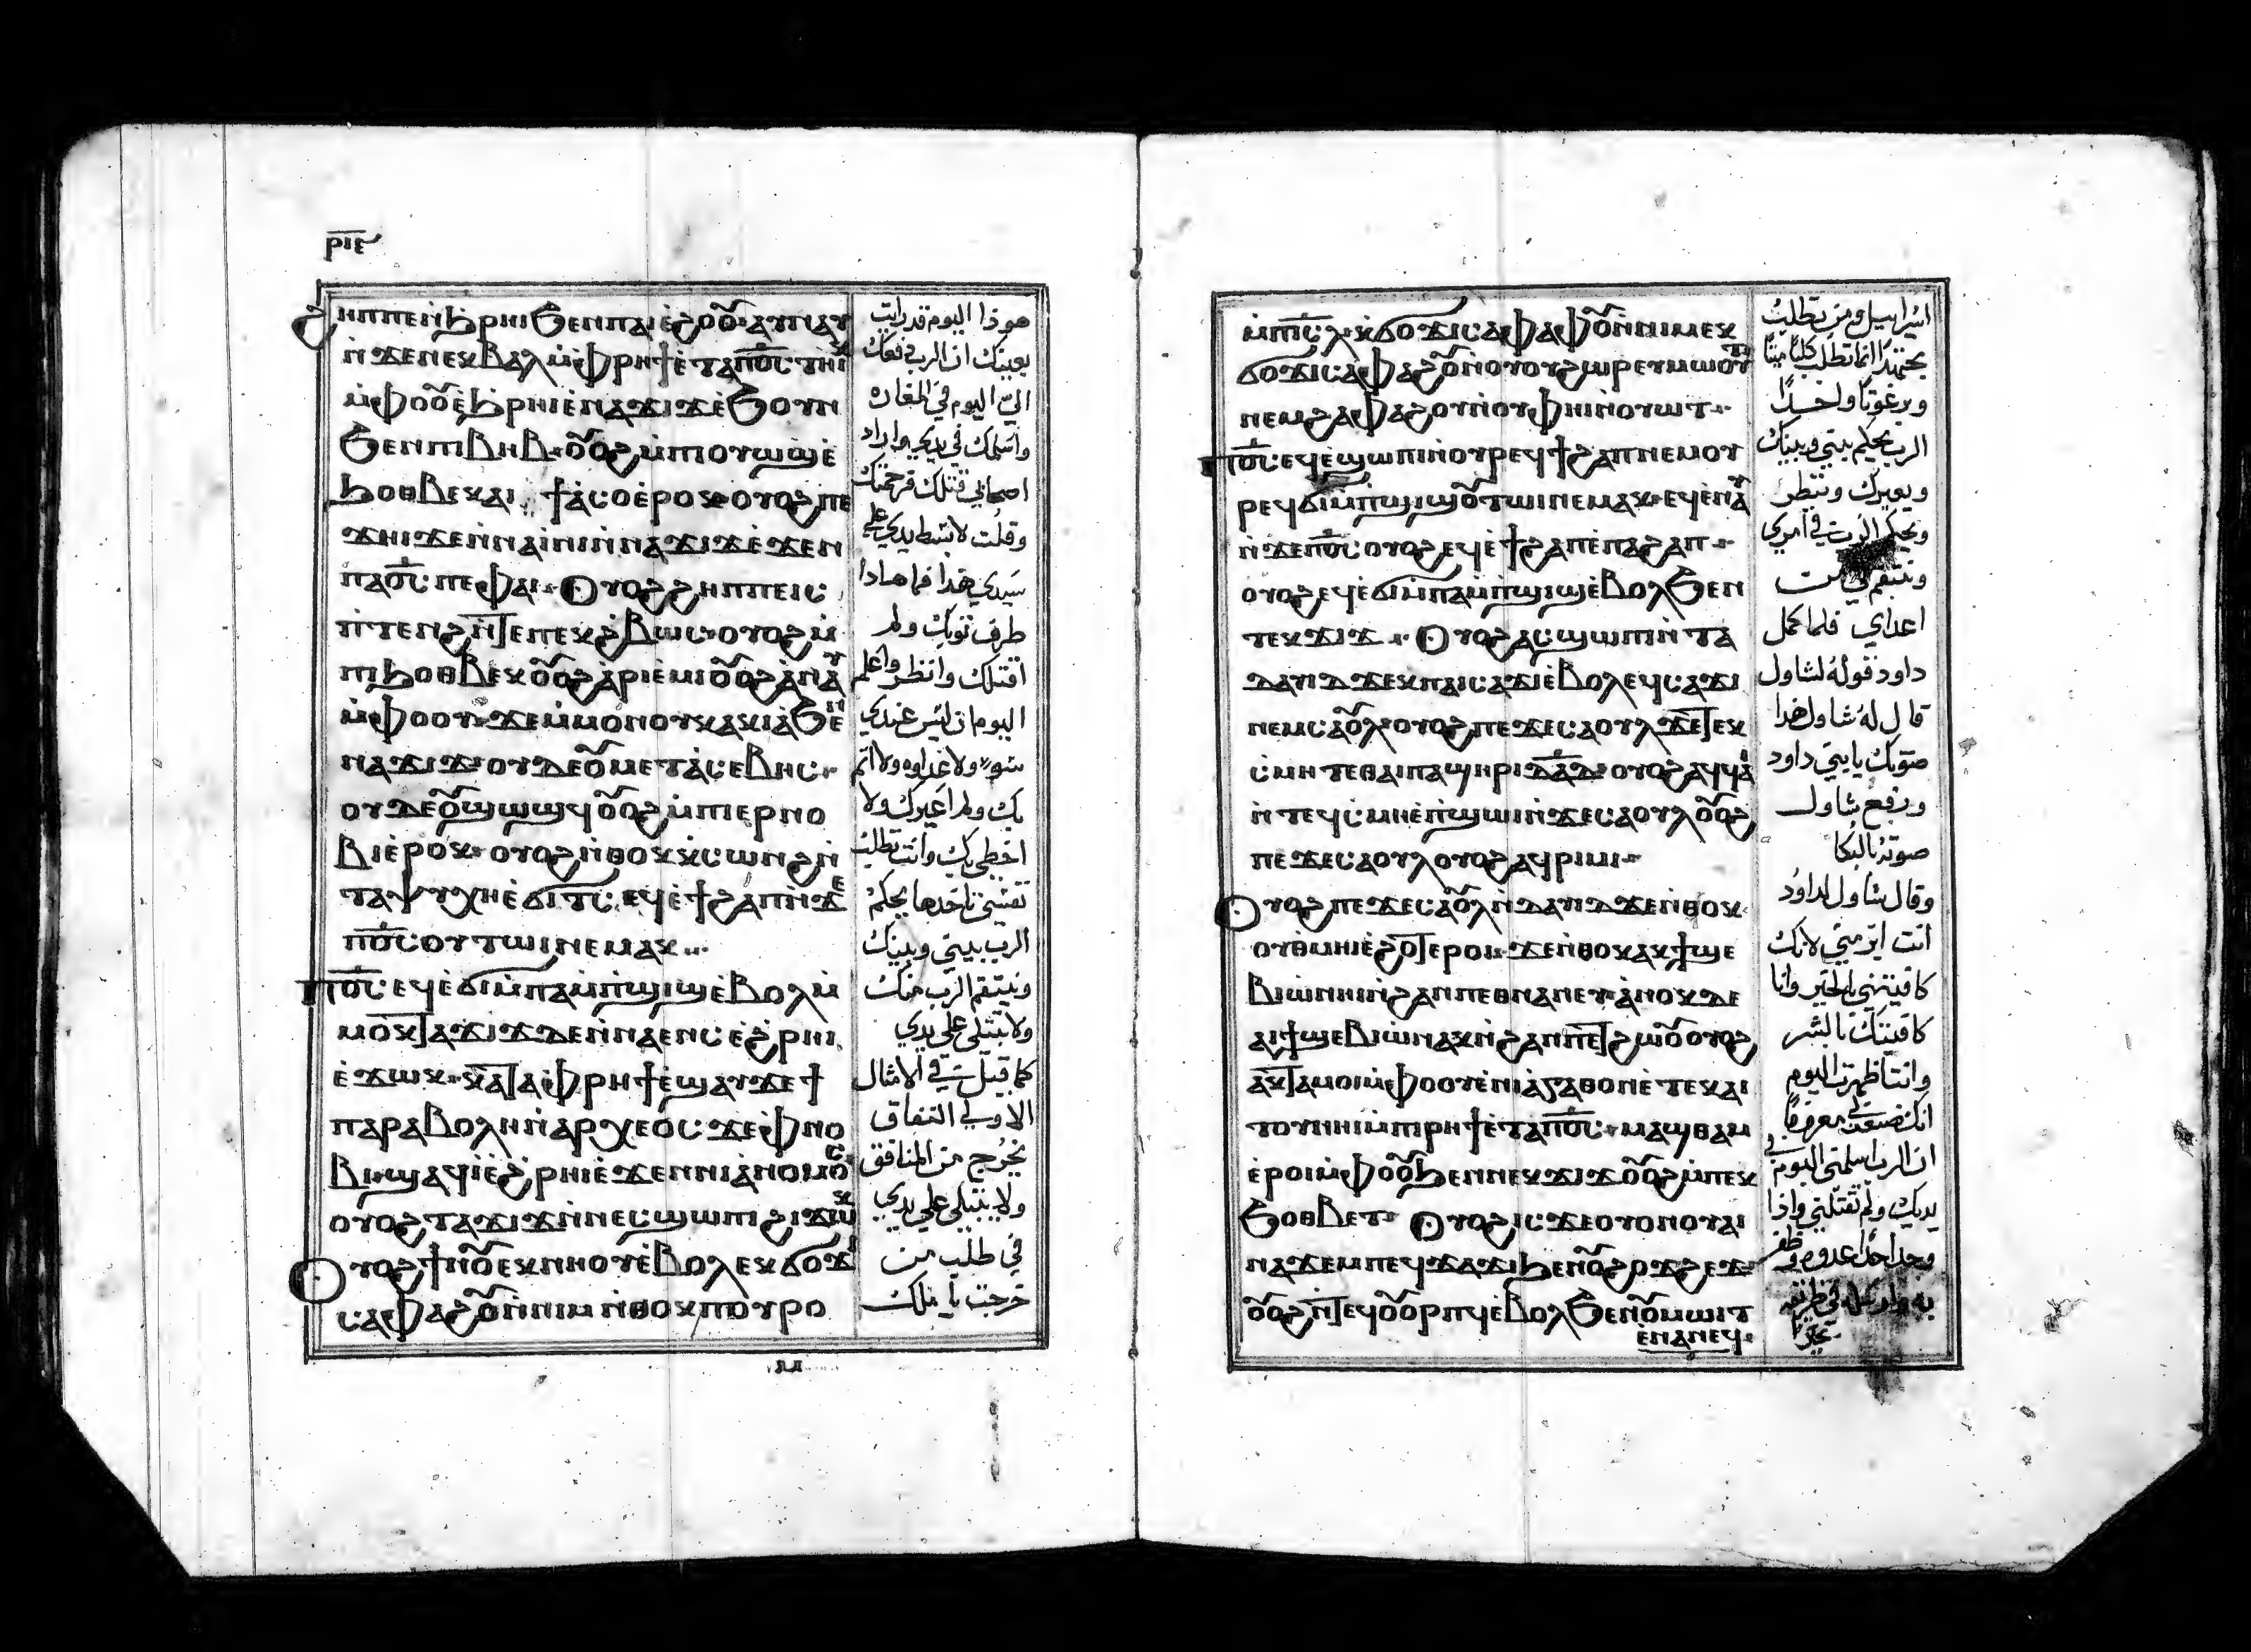 ⲣⲓⲉ
ϩⲏⲡⲡⲉ ⲛ̀ϧⲣⲏⲓ ϧⲉⲛ ⲡⲁⲓ ⲉ̀ϩⲟⲟⲩ ⲁⲩⲛⲁⲩ
ⲛ̀ϫⲉ ⲛⲉⲕⲃⲁⲗ ⲙ̀ⲫⲣⲏϯ ⲉ̀ⲧⲁ ⲡ︦ⲟ︦ⲥ︦ ⲧⲏⲓⲕ
ⲙ̀ⲫⲟⲟⲩ ⲉ̀ϧⲣⲏⲓ ⲉ̀ⲛⲁϫⲓϫ ⲉ̀ϧⲟⲩⲛ
ϧⲉⲛ ⲡⲓⲃⲏⲃ ⲟⲩⲟϩ ⲙ̀ⲡⲓⲟⲩⲱϣ ⲉ̀
ϧⲟⲑⲃⲉⲕ ⲁⲓϯⲁ̀ⲥⲟ ⲉ̀ⲣⲟⲕ ⲟⲩⲟϩ ⲡⲉ
ϫⲏⲓ ϫⲉ ⲛ̀ⲛⲁⲓ̀ⲛⲓ ⲛ̀ⲛⲁϫⲓϫ ⲉ̀ϫⲉⲛ
ⲡⲁⲟ︦ⲥ︦ ⲡⲉ ⲫⲁⲓ Ⲟⲩⲟϩ ϩⲏⲡⲡⲉ ⲓⲥ
ⲡ̀ⲧⲉⲛϩ ⲛ̀ⲧⲉ ⲡⲉⲕϩ̀ⲃⲱⲥ ⲟⲩⲟϩ ⲙ̀
ⲡⲓϧⲟⲑⲃⲉⲕ ⲟⲩⲟϩ ⲁ̀ⲣⲓⲉ̀ⲙⲓ ⲟⲩⲟϩ ⲁ̀ⲛⲁⲩ
ⲙ̀ⲫⲟⲟⲩ ϫⲉ ⲙ̀ⲙⲟⲛ ⲟⲩⲕⲁⲕⲓⲁ̀ ϧⲉⲛ
ⲛⲁϫⲓϫ ⲟⲩⲇⲉ ⲟⲩⲙⲉⲧⲁ̀ⲥⲉⲃⲏⲥ
ⲟⲩⲇⲉ ⲟⲩϣⲱϣϥ ⲟⲩⲟϩ ⲙ̀ⲡⲓⲉⲣⲛⲟ
ⲃⲓ ⲉ̀ⲣⲟⲕ ⲟⲩⲟϩ ⲛ̀ⲑⲟⲕ ⲕ̀ⲥⲱⲛϩ ⲛ̀
ⲧⲁⲯⲩⲭⲏ ⲉ̀ϭⲓⲧⲥ ⲉϥⲉ̀ϯϩⲁⲡ ⲛ̀ϫⲉ
ⲡ︦ⲟ︦ⲥ︦ ⲟⲩⲧⲱⲓ ⲛⲉⲙⲁⲕ
Ⲡ︦ⲟ︦ⲥ︦ ⲉϥⲉ̀ϭⲓ ⲙ̀ⲡⲁⲙ̀ⲡ̀ϣⲓϣ ⲉ̀ⲃⲟⲗ ⲙ̀
ⲙⲟⲕ ⲧⲁϫⲓϫ ⲇⲉ ⲛ̀ⲛⲁⲉⲛⲥ ⲉ̀ϩ̀ⲣⲏⲓ
ⲉ̀ϫⲱⲕ ⲕⲁⲧⲁ ⲫ̀ⲣⲏϯ ⲉ̀ϣⲁⲩϫⲉ ϯ
ⲡⲁⲣⲁⲃⲟⲗⲏ ⲛ̀ⲁⲣⲭⲉⲟⲥ ϫⲉ ⲫ̀ⲛⲟ
ⲃⲓ ϣⲁϥⲓ̀ ⲉ̀ϩ̀ⲣⲏⲓ ⲉ̀ϫⲉⲛ ⲛⲓⲁ̀ⲛⲟⲙⲟⲥ
ⲟⲩⲟϩ ⲧⲁϫⲓϫ ⲛ̀ⲛⲉⲥϣⲱⲡⲓ ϩⲓϫⲱⲕ
Ⲟⲩⲟϩ ϯⲛⲟⲩ ⲉⲕⲛⲏⲟⲩ ⲉ̀ⲃⲟⲗ ⲉⲕϭⲟϫⲓ
ⲥⲁⲫⲁϩⲟⲩ ⲛ̀ⲛⲓⲙ ⲛ̀ⲑⲟⲕ ⲡⲟⲩⲣⲟ
هوذا اليوم قد رايت
بعينك ان الرب دفعك
اليّ اليوم في المغاره
واسلمك في يدي واراد
اصحابي قتلك فرحمتك
وقلت لا ابسط يدي علي
سيدي هذا فها هادا
طرف ثوبك ولم
اقتلك وانظر واعلم
اليوم ان ليس عندي
سو ولا عداوه ولا اثم
بك ولم اغيرك ولا
اخطي بك وانت تطلب
نفسي تاخدها يحكم
الرب بيني وبينك
وينتقم الرب منك
ولا تبتلي علي يدي
كما قيل في الامثال
الاولي النفاق
يخرج من المنافق
ولا يبتلي علي يدي
في طلب من
خرجت يا ملك
ⲙ̀ⲡⲓⲥ̅ⲗ̅ ⲕ̀ϭⲟϫⲓ ⲥⲁⲫⲁϩⲟⲩ ⲛ̀ⲛⲓⲙ ⲉⲕ
ϭⲟϫⲓ ⲥⲁⲫⲁϩⲟⲩ ⲛ̀ⲟⲩⲟⲩϩⲱⲣ ⲉϥⲙⲱⲟⲩⲧ
ⲛⲉⲙ ⲥⲁⲫⲁϩⲟⲩ ⲛ̀ⲟⲩⲫⲏⲓ ⲛ̀ⲟⲩⲱⲧ
Ⲡ︦ⲟ︦ⲥ︦ ⲉϥⲉ̀ϣⲱⲡⲓ ⲛ̀ⲟⲩⲣⲉϥϯϩⲁⲡ ⲛⲉⲙ ⲟⲩ
ⲣⲉϥϭⲓⲙ̀ⲡ̀ϣⲓϣ ⲟⲩⲧⲱⲓ ⲛⲉⲙⲁⲕ ⲉϥⲉ̀ⲛⲁⲩ
ⲛ̀ϫⲉ ⲡ︦ⲟ︦ⲥ︦ ⲟⲩⲟϩ ⲉϥⲉ̀ϯϩⲁⲡ ⲉ̀ⲡⲁϩⲁⲡ
ⲟⲩⲟϩ ⲉϥⲉ̀ϭⲓ ⲙ̀ⲡⲁⲙ̀ⲡ̀ϣⲓϣ ⲉ̀ⲃⲟⲗ ϧⲉⲛ
ⲧⲉⲕϫⲓϫ Ⲟⲩⲟϩ ⲁⲥϣⲱⲡⲓ ⲛ̀ⲧⲁ
ⲇⲁⲩⲓⲇ ϫⲉⲕ ⲡⲁⲓⲥⲁϫⲓ ⲉ̀ⲃⲟⲗ ⲉϥⲥⲁϫⲓ
ⲛⲉⲙ ⲥⲁⲟⲩⲗ ⲟⲩⲟϩ ⲡⲉϫⲉ ⲥⲁⲟⲩⲗ ϫⲉ ⲧⲉⲕ
ⲥ̀ⲙⲏ ⲧⲉ ⲑⲁⲓ ⲡⲁϣⲏⲣⲓ ⲇ︦ⲁ︦ⲇ︦ ⲟⲩⲟϩ ⲁϥϥⲁⲓ
ⲛ̀ⲧⲉϥⲥ̀ⲙⲏ ⲉ̀ⲡ̀ϣⲱⲓ ⲛ̀ϫⲉ ⲥⲁⲟⲩⲗ ⲟⲩⲟϩ
ⲡⲉϫⲉ ⲥⲁⲟⲩⲗ ⲟⲩⲟϩ ⲁϥⲣⲓⲙⲓ
Ⲟⲩⲟϩ ⲡⲉϫⲉ ⲥⲁⲟⲩⲗ ⲛ̀ⲇⲁⲩⲓⲇ ϫⲉ ⲛ̀ⲑⲟⲕ
ⲟⲩⲑ̀ⲙⲏⲓ ⲉ̀ϩⲟⲧⲉ ⲉⲣⲟⲓ ϫⲉ ⲛ̀ⲑⲟⲕ ⲁⲕϯϣⲉ
ⲃⲓⲱ̀ ⲛⲏⲓ ⲛ̀ϩⲁⲛⲡⲉⲑⲛⲁⲛⲉⲩ ⲁ̀ⲛⲟⲕ ⲇⲉ
ⲁⲓϯϣⲉⲃⲓⲱ̀ ⲛⲁⲕ ⲛ̀ϩⲁⲛⲡⲉⲧϩⲱⲟⲩ ⲟⲩⲟϩ
ⲁⲕⲧⲁⲙⲟⲓ ⲙ̀ⲫⲟⲟⲩ ⲉ̀ⲛⲓⲁ̀ⲅⲁⲑⲟⲛ ⲉ̀ⲧⲉⲕⲁⲓ
ⲧⲟⲩ ⲛⲏⲓ ⲙ̀ⲡⲣⲏϯ ⲉ̀ⲧⲁ ⲡ︦ⲟ︦ⲥ︦ ⲙⲁϣⲑⲁⲙ
ⲉ̀ⲣⲟⲓ ⲙ̀ⲫⲟⲟⲩ ϧⲉⲛ ⲛⲉⲕϫⲓϫ ⲟⲩⲟϩ ⲙ̀ⲡⲉⲕ
ϧⲟⲑⲃⲉⲧ Ⲟⲩⲟϩ ⲓⲥϫⲉ ⲟⲩⲟⲛ ⲟⲩⲁⲓ
ⲛⲁϫⲉⲙ ⲡⲉϥϫⲁϫⲓ ϧⲉⲛ ⲟⲩϩⲟϫϩⲉϫ
ⲟⲩⲟϩ ⲛ̀ⲧⲉϥⲟⲩⲟⲣⲡϥ ⲉ̀ⲃⲟⲗ ϧⲉⲛ ⲟⲩⲙⲱⲓⲧ
ⲉⲛⲁⲛⲉϥ
اسراييل ومن تطلب
مجتهدا انما تطلب كلبا ميتا
وبرغوتا واحدا
الرب يحكم بيني وبينك
وينظر
ويحكم الرب في امري
وينتقم لي من
اعداي فلما كمل
داود قوله لشاول
قال له شاول هذا
صوتك يا بني داود
ورفع شاول
صوته بالبكا
وقال شاول لداود
انت ابر مني لانك
كافيتني بالخير وانا
كافيتك بالشر
وانت اظهرت اليوم
انك صنعت لي معروفا
ان الرب اسلمني اليوم في
يديك ولم تقتلني واذا
وجد احدا عدوه وظفر
به وارسله في طريق